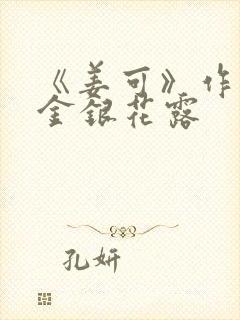 《姜可》作
金银花露
孔妍